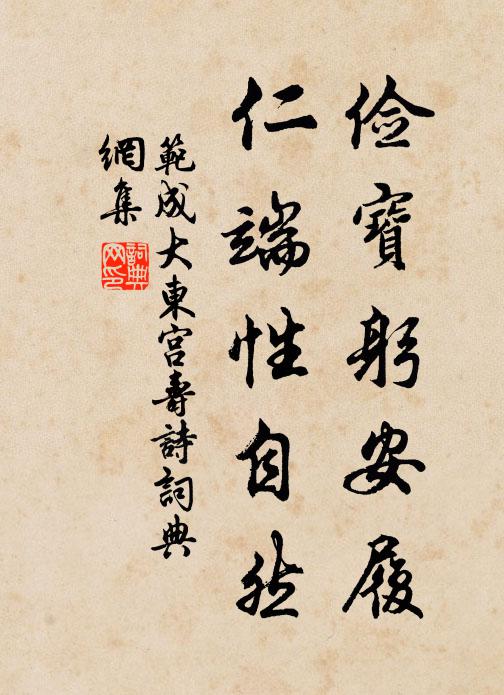 俭寶躬安履
仁端性自然
範成大東宮壽詩詞典
網集
詞典
网印